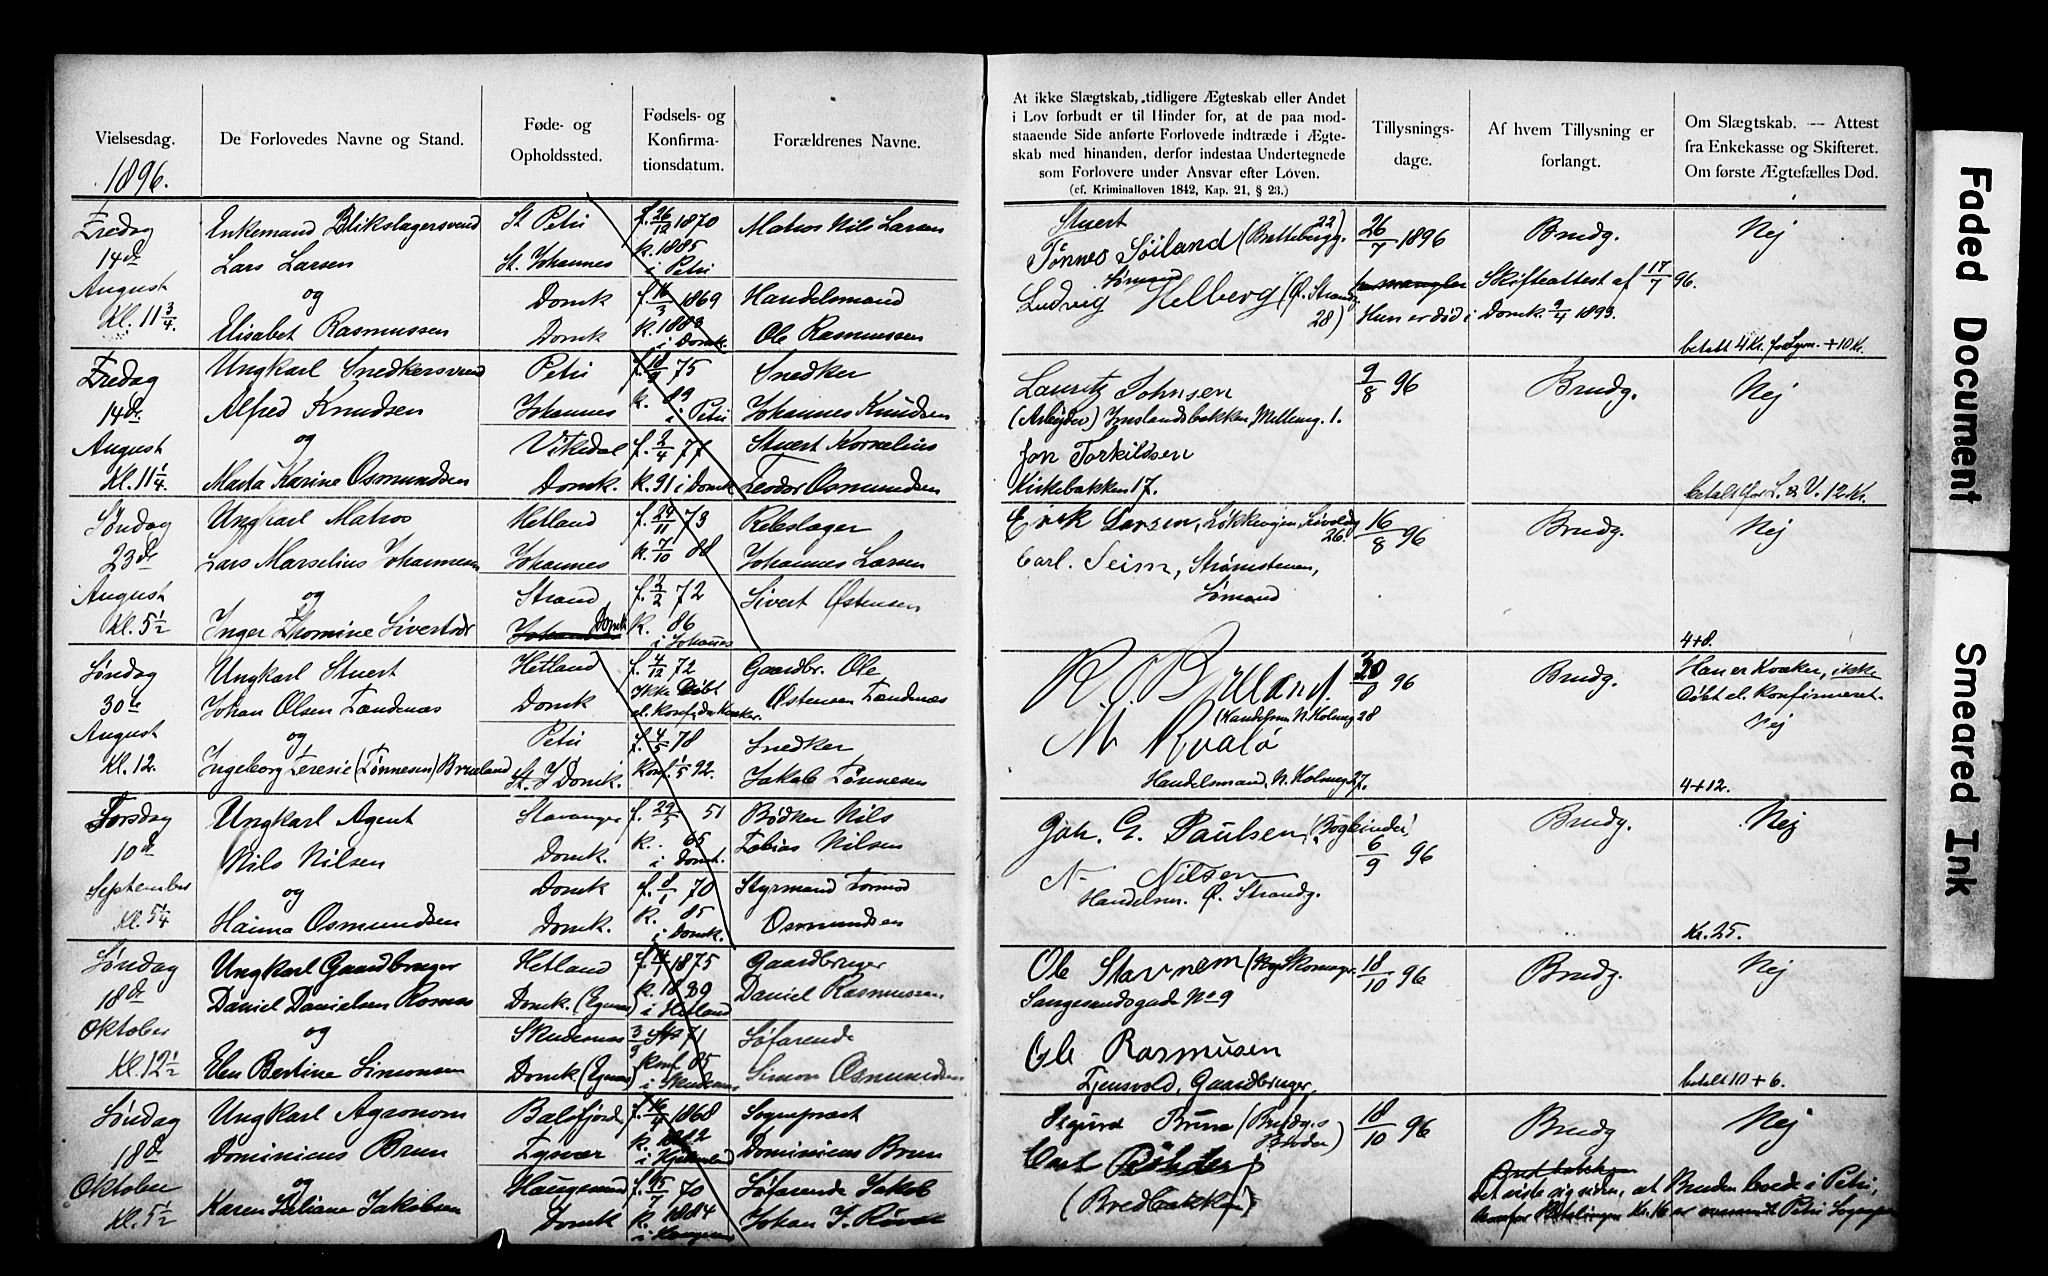 Vielsesdag.
De Forlovedes Navne og Stand.
Føde- og
Opholdssted.
Fødsels- og
Konfirma-
tionsdatum.
Forældrenes Navne.
1896.
Fredag
14de
August
Kl. 11 3/4.
Enkemand Blikslagersvend
Lars Larsen
og
Elisabet Rasmussen
St Petri
St. Johannes
Domk
Domk
f. 26/12 1870
k. 1885
i Petri
f. 16/3 1869
k. 1883
i Domk.
Matros Nils Larsen
Handelsmand
Ole Rasmussen
Fredag
14de
August
Kl. 11 1/4.
Ungkarl Snedkersvend
Alfred Knudsen
og
Marta Karine Osmundsen
Petri
Johannes
Vikedal
Domk.
75
k. 89
i Petri
f. 2/4 77
k. 91 i Domk
Snedker
Johannes Knudsen
Stuert Kornelius
Teodor Osmundsen
Søndag
23de
August
Kl. 5 1/2
Ungkarl Matros
Lars Marselius Johannesen
og
Inger Thomine Sivertsdr
Hetland
Johannes
Strand
Johannes Domk
f. 24/11 73
k. 7/10 88
f. 2/2 72
k. 86
i Johannes
Rebslager
Johannes Larsen
Sivert Østensen
Søndag
30te
August
Kl. 12.
Ungkarl Stuert
Johan Olsen Tandenæs
og
Ingeborg Teresie (Tønnesen) Brueland
Hetland
Domk
Petri
St. J Domk.
f. 4/12 72
Ikke Døbt
el. konf. da Kvæker.
f. 4/5 78
Konf. 1/5 92.
Gaardbr. Ole
Østensen Tandenæs
Snedker
Jakob Tønnesen
Torsdag
10de
September
Kl. 5 1/4
Ungkarl Agent
Nils Nilsen
og
Hanna Osmundsen
Stavanger
Domk.
Domk
Domk.
f. 29/5 51
k. 65
i Domk.
f. 8/1 70
k. 85
i Domk.
Bødker Nils
Tobias Nilsen
Styrmand Tormod
Osmundsen
Søndag
18de
Oktober
Kl. 12 1/2
Ungkarl Gaardbruger
Daniel Danielsen Ramnæs
og
Elen Bertine Simonsen
Hetland
Domk. (Egenæs)
Skudenæs
Domk (Egenæs)
1875
k. 1889
i Hetland
3/9 71
konf. 85
i Skudenæs
Gaardbruger
Daniel Rasmussen
Søfarende
Simon Osmundsen
Søndag
18de
Oktober
Kl. 5 1/2
Ungkarl Agronom
Dominicus Brun
og
Karen Juliane Jakobsen
Balsfjord
Tysvær
Haugesund
Domk
f. 16/4 1868
k. 1882
70
k. 1884
Sogneprest
Dominicus Brun
Søfarende Jakob
Johan J. Røvær
At ikke Slægtskab, tidligere Ægteskab eller Andet
i Lov forbudt er til Hinder for, at de paa mod-
staaende Side anførte Forlovede indtræde i Ægte-
skab med hinanden, derfor indestaa Undertegnede
som Forlovere under Ansvar efter Loven.
(cf. Kriminalloven 1842, Kap. 21, § 23.)
Tillysnings-
dage.
Af hvem Tillysning er
forlangt.
Om Slægtskab. — Attest
fra Enkekasse og Skifteret.
Om første Ægtefælles Død.
Stuert
Tønnes Soiland (Brattebergg. 22)
Sømand
Ludvig Helberg (Ø. Strandg. 28)
26/7 1896
Brudg.
Nej
Skifteattest af 17/7 96.
Hun er død i Domk. 9/4 1893.
betalt 4 Kr. for Lysn. + 10 Kr.
Lauritz Johnsen
(Arbeider) Jonslandsbakken, Mellemg. 1.
Jon Torkildsen
Kirkebakken 17.
9/8 96
Brudg.
Nej
betalt for L. & V. 12 Kr.
Erik Larsen, Løkkeveien, 26.
Carl. Seim, Strømstenen,
Sømand
16/8 96
Brudg.
Nej
4+8.
R. O. Bruland.
(Handelsm. N. Holmeg 28
M Kvalø
Handelsmand, N. Holmeg 27.
30/8 96
Brudg.
Han er Kvæker, ikke
døbt el. konfirmeret.
Nej
4+12.
Joh. G. Paulsen (Bogbinder)
N Nilsen
Handelsm. Ø. Strandg.
6/9 96
Brudg.
Nej
Kr. 25.
Ole Stavnem (Skomager
Langesundsgade No 9
Ole Rasmusen
Tjensvold, Gaardbruger,
18/10 96
Brudg.
Nej
betalt 10+6.
Sigurd Brun (Brudg.s
Broder)
Carl Röhder
(Bredbakken)
18/10 96
Brudg
Nej
Det viste sig siden, at Bruden boede i Petri,
Faded Document
Smeared Ink